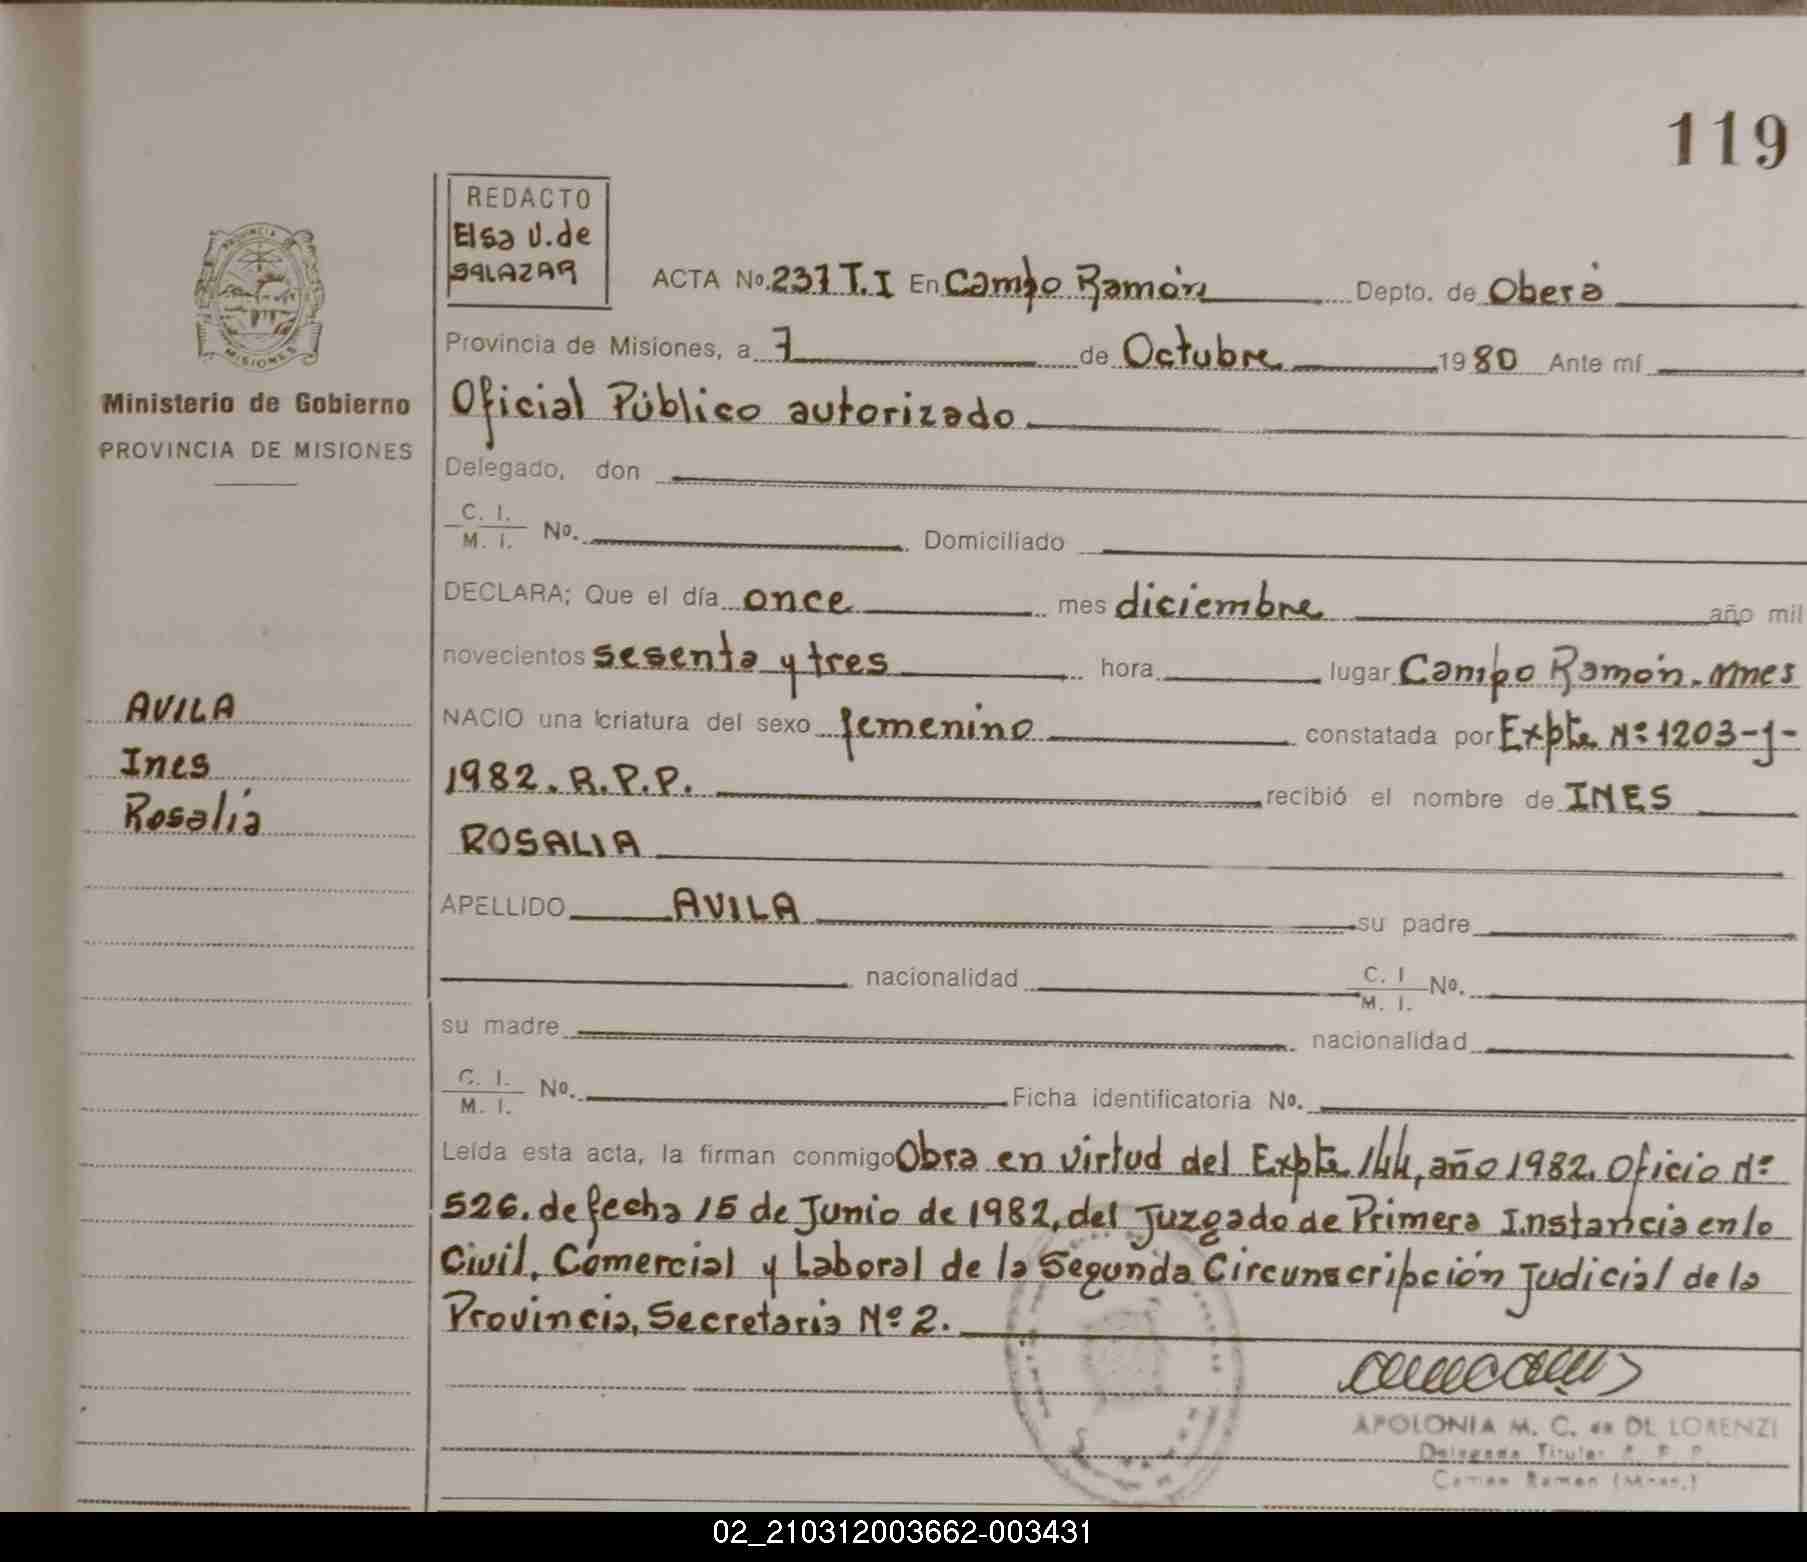 119
REDACTO
Elsa V. de
SALAZAR
PROVINCIA DE
MISIONES
ACTA No. 237 T.I En Campo Ramón Depto. de Oberá
Provincia de Misiones, a 7 de Octubre 1980 Ante mí
Ministerio de Gobierno
PROVINCIA DE MISIONES
Oficial Público autorizado
Delegado, don
C. I.
M. I. No. Domiciliado
DECLARA; Que el día once mes diciembre año mil
novecientos sesenta y tres hora lugar Campo Ramón. Mnes
AVILA
Ines
Rosalia
NACIO una criatura del sexo femenino constatada por Expte Nº 1203-J-
1982. R.P.P. recibió el nombre de INES
ROSALIA
APELLIDO AVILA su padre
nacionalidad C. I M. I. No.
su madre nacionalidad
C. I.
M. I. No. Ficha identificatoria No.
Leída esta acta, la firman conmigo Obra en virtud del Expte 144, año 1982. Oficio Nº
526. de fecha 15 de Junio de 1982, del Juzgado de Primera Instancia en lo
Civil, Comercial y Laboral de la Segunda Circunscripción Judicial de la
Provincia, Secretaria Nº 2.
APOLONIA M. C. de DE LORENZI
Delegada Titular R. P. P.
Campo Ramon (Mnes.)
02_210312003662-003431